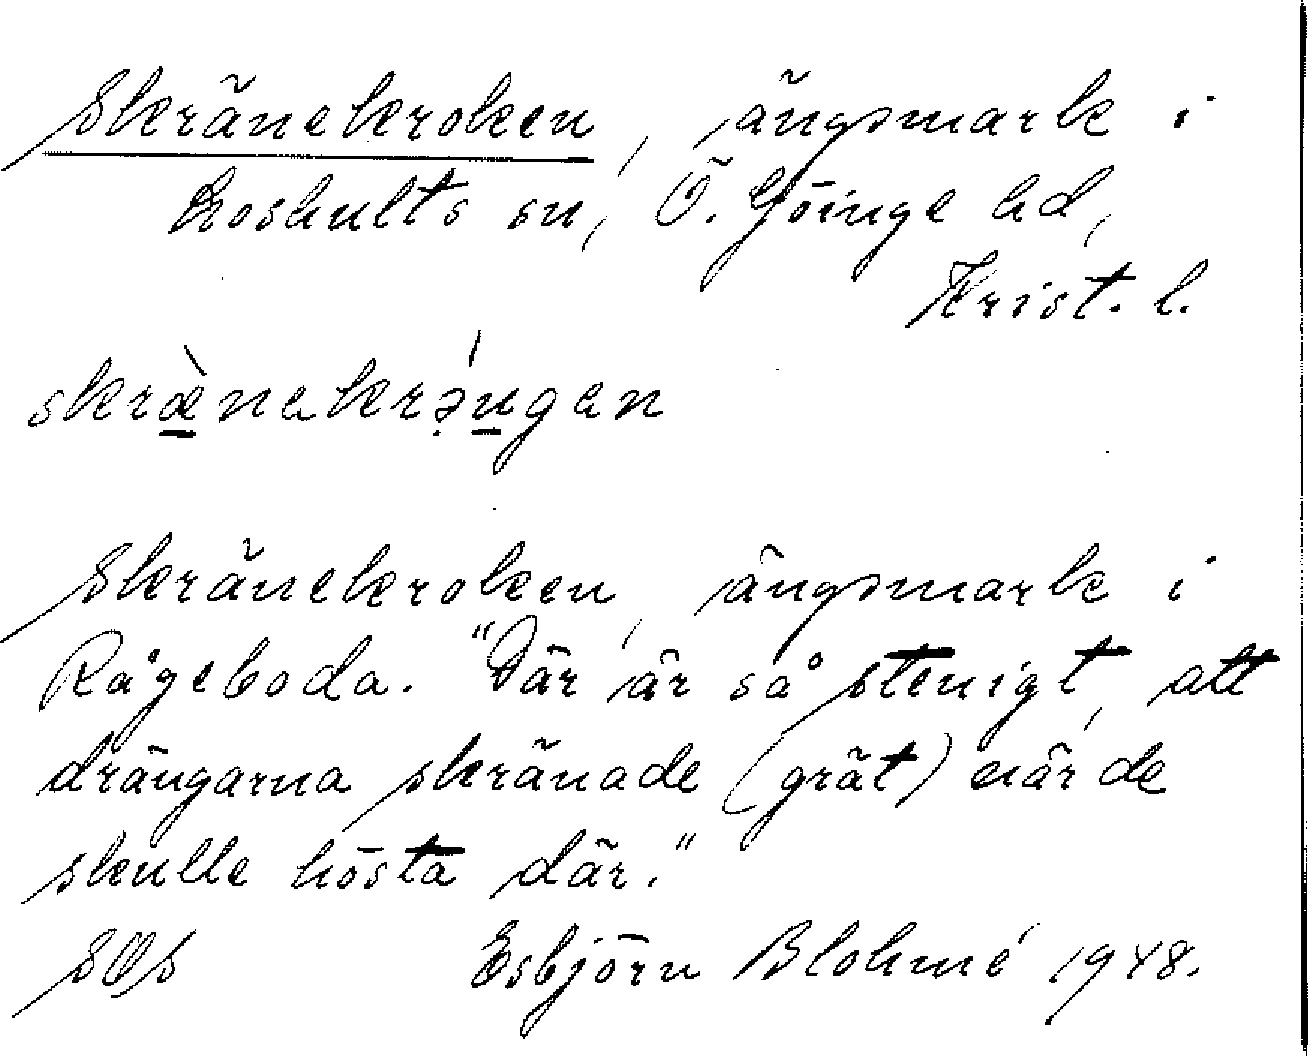 Skränekroken, ängsmark i
Loshults sn, Ö. Göinge hd,
Krist. l.
skræ̀nakrə́ųgen
Skränekroken, ängsmark i
Rågeboda. "Där är så stenigt, att
drängarna skränade (grät) när de
skulle hösta där."
SOS Esbjörn Blohmé 1948.